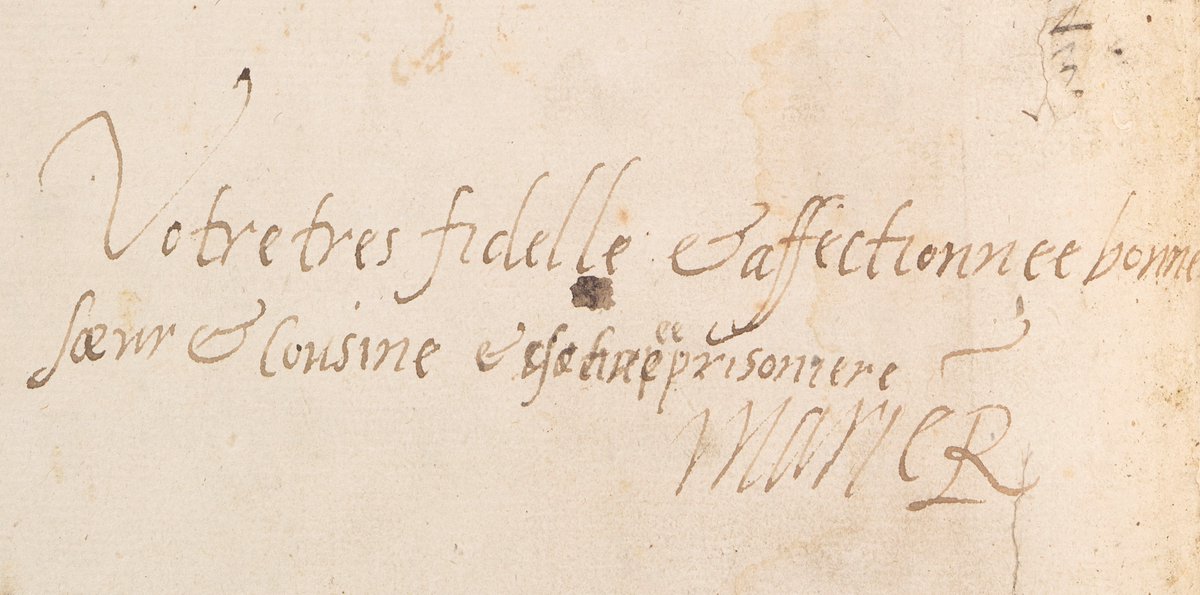 Votre tres fidelle & affectionnee bonne
sœur & cousine & prisoniere
Marie R